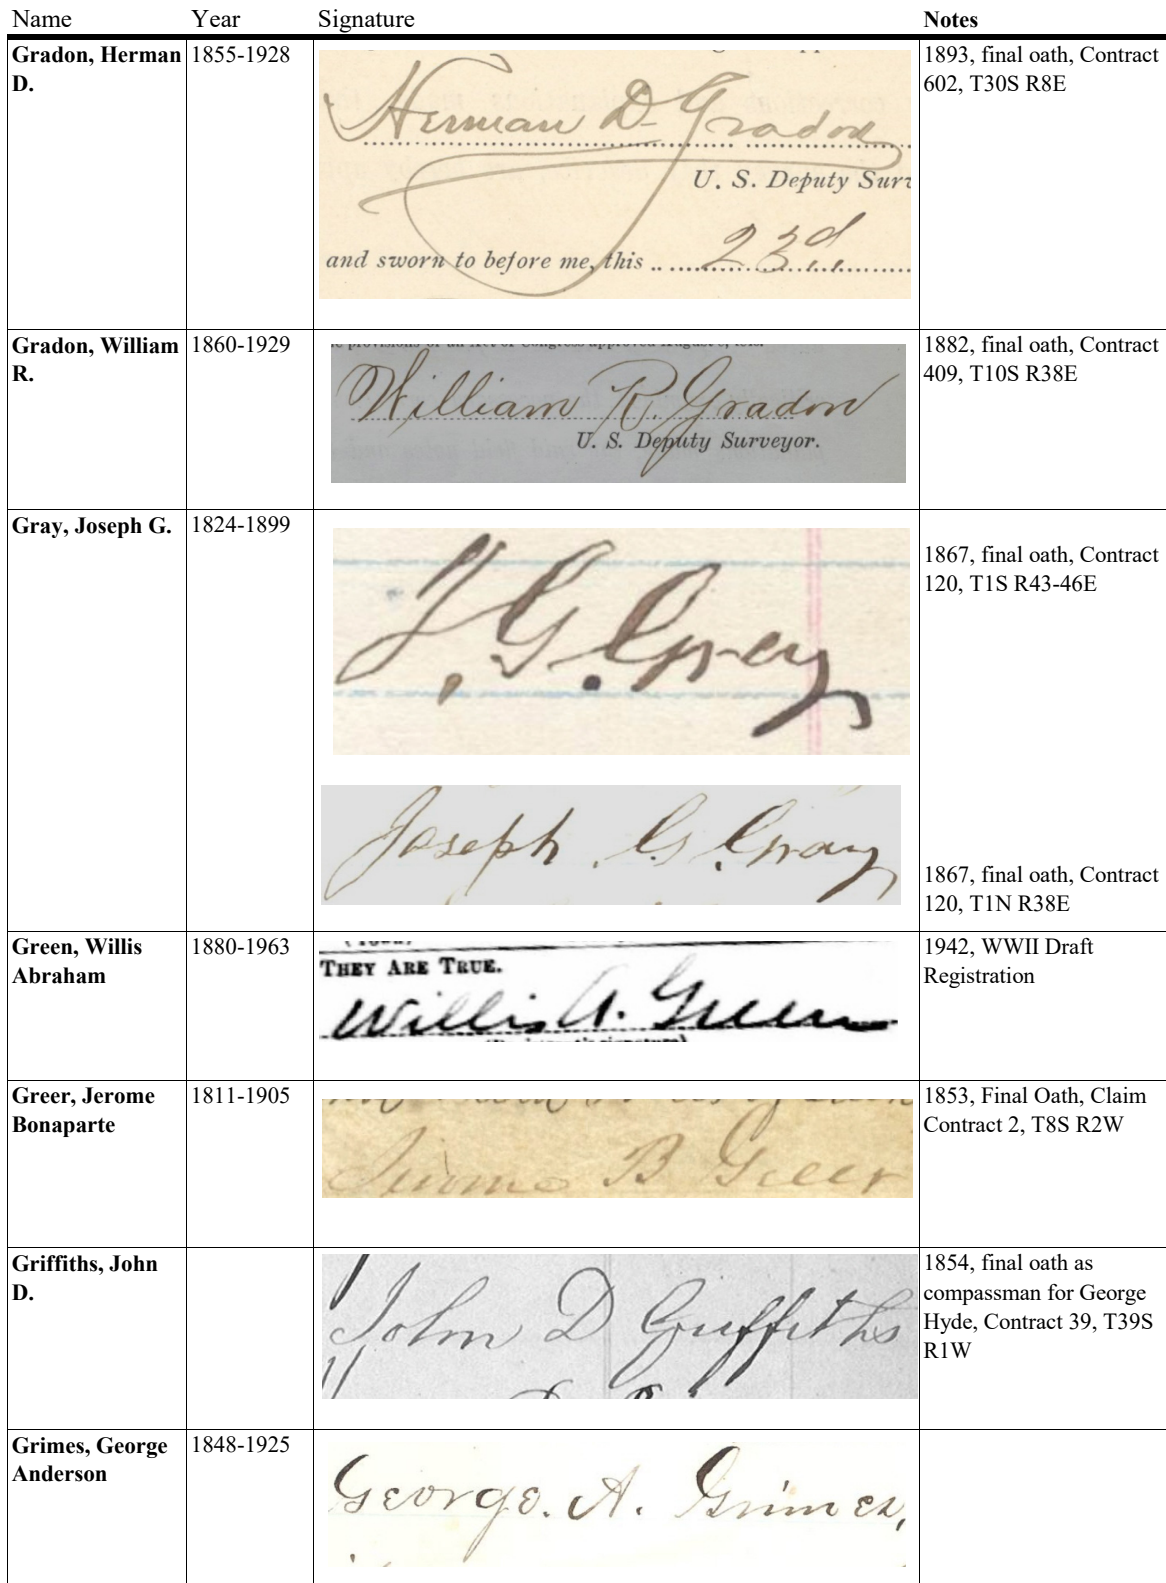 Name Year Signature Notes
Gradon, Herman D. 1855-1928
Herman D. Gradon
U. S. Deputy Surv
and sworn to before me, this .. 23d
1893, final oath, Contract
602, T30S R8E
Gradon, William R. 1860-1929
William R. Gradon
U. S. Deputy Surveyor.
1882, final oath, Contract
409, T10S R38E
Gray, Joseph G. 1824-1899
J. G. Gray
1867, final oath, Contract
120, T1S R43-46E
Joseph G. Gray
1867, final oath, Contract
120, T1N R38E
Green, Willis
Abraham
1880-1963
THEY ARE TRUE.
Willis A. Green
1942, WWII Draft
Registration
Greer, Jerome
Bonaparte
1811-1905
Jerome B Greer
1853, Final Oath, Claim
Contract 2, T8S R2W
Griffiths, John
D.
John D Griffiths
1854, final oath as
compassman for George
Hyde, Contract 39, T39S
R1W
Grimes, George
Anderson
1848-1925
George. A. Grimes,